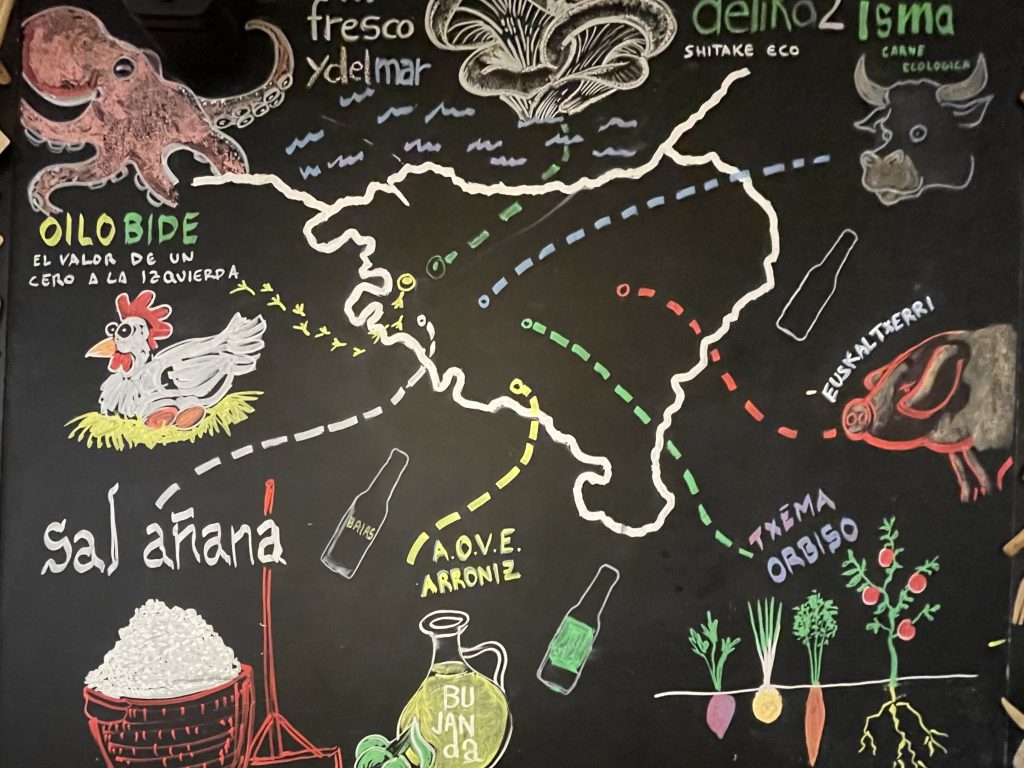 fresco
ydelmar
SHITAKE ECO
Isma
CARNE
ECOLOGICA
OILOBIDE
EL VALOR DE UN
CERO A LA IZQUIERDA
EUSKALTXERRI
sal añana
BAIAS
A.O.V.E.
ARRONIZ
TXEMA
ORBISO
BU
JAN
da